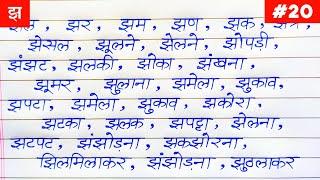 झ #20
झर, झम, झण, झक,
झेसल, झूलने, झेलने, झोपड़ी,
झंझट, झलकी, झोंका, झंखना,
झूमर, झुलाना, झमेला, झुकाव,
झपटा, झमेला, झुकाव, झकोरा,
झटका, झलक, झपट्टा, झेलना,
झटपट, झंझोड़ना, झकझोरना,
झिलमिलाकर, झंझोड़ना, झुठलाकर